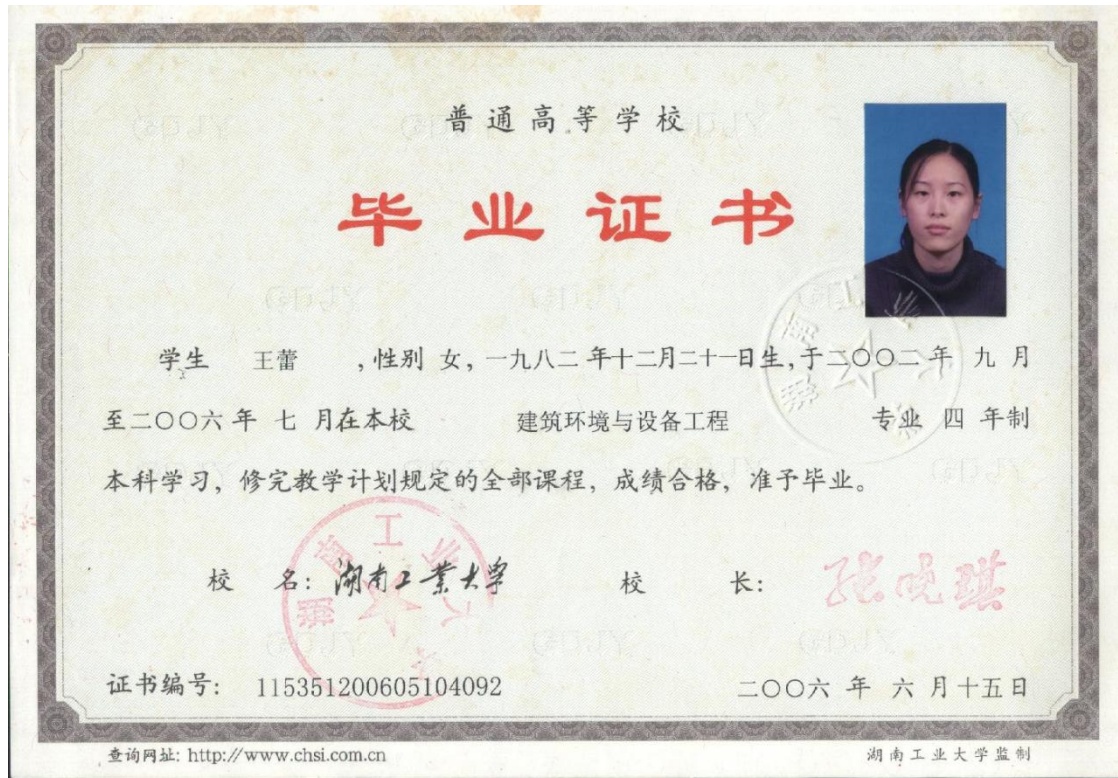 普通高等学校
毕业证书
学生 王蕾 ，性别 女，一九八二 年十二月二十一日生，于二〇〇二年 九 月
至二〇〇六 年 七 月在本校 建筑环境与设备工程 专业 四 年制
本科学习，修完教学计划规定的全部课程，成绩合格，准予毕业。
湖南工业大学
校 名：湖南工業大学 校 长：张晓琪
湖南工业大学
证书编号： 115351200605104092 二〇〇六 年 六 月十五日
查询网址: http://www.chsi.com.cn 湖南工业大学监制